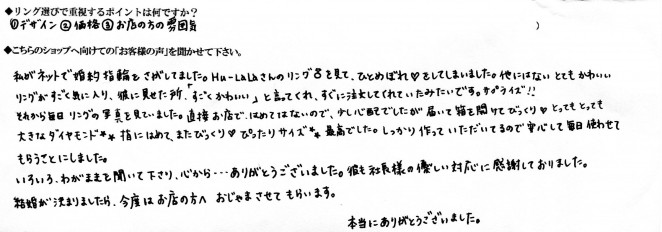 ◆リング選びで重視するポイントは何ですか?
①デザイン②価格③お店の方の雰囲気 )
◆こちらのショップへ向けての「お客様の声」を聞かせて下さい。
私がネットで婚約指輪をさがしてました。Hu-LaLaさんのリング8を見て、ひとめぼれ♡をしてしまいました。他にはないとてもかわいい
リングがすごく気に入り、彼に見せた所、「すごくかわいい」と言ってくれ、すぐに注文してくれていたみたいです。サプライズ!!
それから毎日リングの写真を見ていました。直接お店で、はめてはないので、少し心配でしたが届いて箱を開けてびっくり♡とってもとっても
大きなダイヤモンド** 指にはめて、またびっくり♡ ぴったりサイズ** 最高でした。しっかり作っていただいてるので安心して毎日使わせて
もらうことにしました。
いろいろ、わがままを聞いて下さり、心から・・・ありがとうございました。彼も社長様の優しい対応に感謝しておりました。
結婚が決まりましたら、今度はお店の方へ おじゃまさせてもらいます。
本当にありがとうございました。